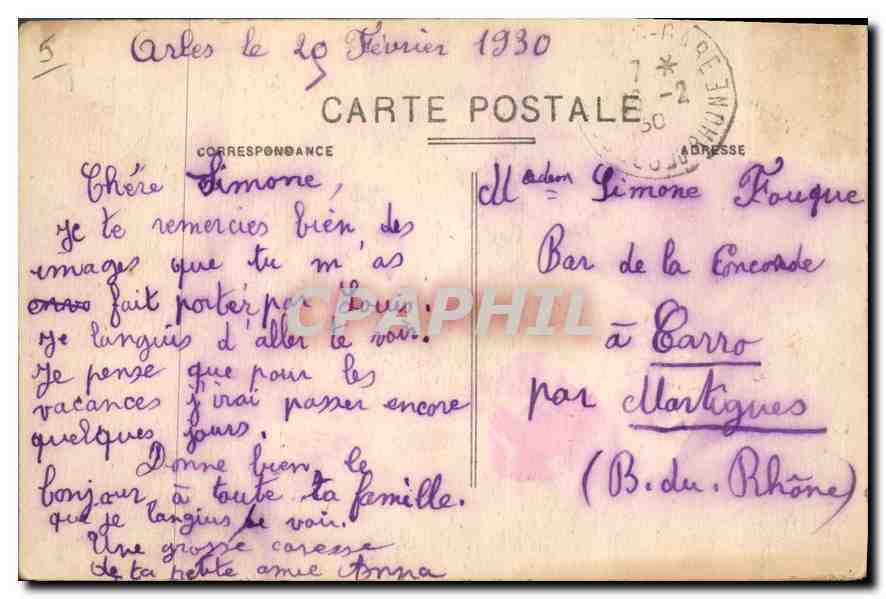 5
Arles le 29 Février 1930
-GARE
7 *
-2
30
CARTE POSTALE
CORRESPONDANCE
ADRESSE
Chére Simone,
Je te remercies bien, des
images que tu m'as
fait porter par Louis.
Je languis d'aller te voir.
Je pense que pour les
vacances j'irai passer encore
quelques jours.
Donne bien le
bonjour à toute ta famille.
que je languis de voir.
Une grosse caresse
de ta petite amie Anna
Simone Fouque
Bar de la Concorde
à Carro
par Martigues
(B. du. Rhône)
CPAPHIL